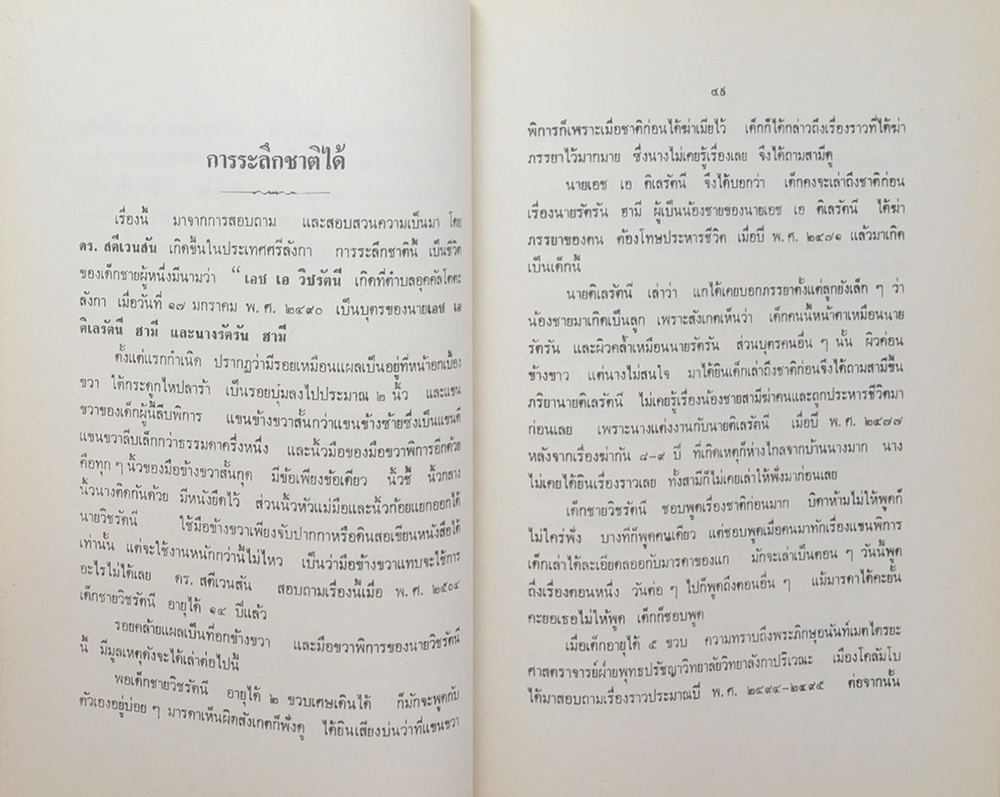 การระลึกชาติได้
เรื่องนี้ มาจากการสอบถาม และสอบสวนความเป็นมา โดย
ดร. สตีเวนสัน เกิดขึ้นในประเทศศรีลังกา การระลึกชาตินี้ เป็นชีวิต
ของเด็กชายผู้หนึ่งมีนามว่า “เอช เอ วิชรัตนี เกิดที่ตำบลอุคคัลโตตะ
ลังกา เมื่อวันที่ ๑๗ มกราคม พ. ศ. ๒๔๙๐ เป็นบุตรของนายเอช เอ
ติเลรัตนี ฮามี และนางรัตรัน ฮามี
ตั้งแต่แรกกำเนิด ปรากฏว่ามีรอยเหมือนแผลเป็นอยู่ที่หน้าอกเบื้อง
ขวา ใต้กระดูกไหปลาร้า เป็นรอยบุ๋มลงไปประมาณ ๒ นิ้ว และแขน
ขวาของเด็กผู้นี้ลีบพิการ แขนข้างขวาสั้นกว่าแขนข้างซ้ายซึ่งเป็นแขนดี
แขนขวาลีบเล็กกว่าธรรมดาครึ่งหนึ่ง และนิ้วมือของมือขวาพิการอีกด้วย
คือทุก ๆ นิ้วของมือข้างขวาสั้นกุด มีข้อเพียงข้อเดียว นิ้วชี้ นิ้วกลาง
นิ้วนางติดกันด้วย มีหนังยึดไว้ ส่วนนิ้วหัวแม่มือและนิ้วก้อยแยกออกได้
นายวิชรัตนี ใช้มือข้างขวาเพียงจับปากกาหรือดินสอเขียนหนังสือได้
เท่านั้น แต่จะใช้งานหนักกว่านี้ไม่ไหว เป็นว่ามือข้างขวาแทบจะใช้การ
อะไรไม่ได้เลย ดร. สตีเวนสัน สอบถามเรื่องนี้เมื่อ พ. ศ. ๒๕๐๔
เด็กชายวิชรัตนี อายุได้ ๑๔ ปีแล้ว
รอยคล้ายแผลเป็นที่อกข้างขวา และมือขวาพิการของนายวิชรัตนี
นี้ มีมูลเหตุดังจะได้เล่าต่อไปนี้
พอเด็กชายวิชรัตนี อายุได้ ๒ ขวบเศษเดินได้ ก็มักจะพูดกับ
ตัวเองอยู่บ่อย ๆ มารดาเห็นผิดสังเกตก็ฟังดู ได้ยินเสียงบ่นว่าที่แขนขวา
๔๕
พิการก็เพราะเมื่อชาติก่อนได้ฆ่าเมียไว้ เด็กก็ได้กล่าวถึงเรื่องราวที่ได้ฆ่า
ภรรยาไว้มากมาย ซึ่งนางไม่เคยรู้เรื่องเลย จึงได้ถามสามีดู
นายเอช เอ ติเลรัตนี จึงได้บอกว่า เด็กคงจะเล่าถึงชาติก่อน
เรื่องนายรัตรัน ฮามี ผู้เป็นน้องชายของนายเอช เอ ติเลรัตนี ได้ฆ่า
ภรรยาของตน ต้องโทษประหารชีวิต เมื่อปี พ. ศ. ๒๔๗๑ แล้วมาเกิด
เป็นเด็กนี้
นายติเลรัตนี เล่าว่า แกได้เคยบอกภรรยาตั้งแต่ลูกยังเล็ก ๆ ว่า
น้องชายมาเกิดเป็นลูก เพราะสังเกตเห็นว่า เด็กคนนี้หน้าตาเหมือนนาย
รัตรัน และผิวคล้ำเหมือนนายรัตรัน ส่วนบุตรคนอื่น ๆ นั้น ผิวค่อน
ข้างขาว แต่นางไม่สนใจ มาได้ยินเด็กเล่าถึงชาติก่อนจึงได้ถามสามีขึ้น
ภริยานายติเลรัตนี ไม่เคยรู้เรื่องน้องชายสามีฆ่าคนและถูกประหารชีวิตมา
ก่อนเลย เพราะนางแต่งงานกับนายติเลรัตนี เมื่อปี พ. ศ. ๒๔๗๗
หลังจากเรื่องฆ่ากัน ๘-๙ ปี ที่เกิดเหตุก็ห่างไกลจากบ้านนางมาก นาง
ไม่เคยได้ยินเรื่องราวเลย ทั้งสามีก็ไม่เคยเล่าให้ฟังมาก่อนเลย
เด็กชายวิชรัตนี ชอบพูดเรื่องชาติก่อนมาก บิดาห้ามไม่ให้พูดก็
ไม่ใคร่ฟัง บางทีก็พูดคนเดียว แต่ชอบพูดเมื่อคนมาทักเรื่องแขนพิการ
เด็กเล่าได้ละเอียดลออกับมารดาของแก มักจะเล่าเป็นตอน ๆ วันนี้พูด
ถึงเรื่องตอนหนึ่ง วันต่อ ๆ ไปก็พูดถึงตอนอื่น ๆ แม้มารดาได้คะยั้น
คะยอเธอไม่ให้พูด เด็กก็ชอบพูด
เมื่อเด็กอายุได้ ๕ ขวบ ความทราบถึงพระภิกษุอนันท์เมตไตรยะ
ศาสตราจารย์ฝ่ายพุทธปรัชญาวิทยาลัยวิทยาลังกาปริเวณะ เมืองโคลัมโบ
ได้มาสอบถามเรื่องราวประมาณปี พ. ศ. ๒๔๙๔-๒๔๙๕ ต่อจากนั้น